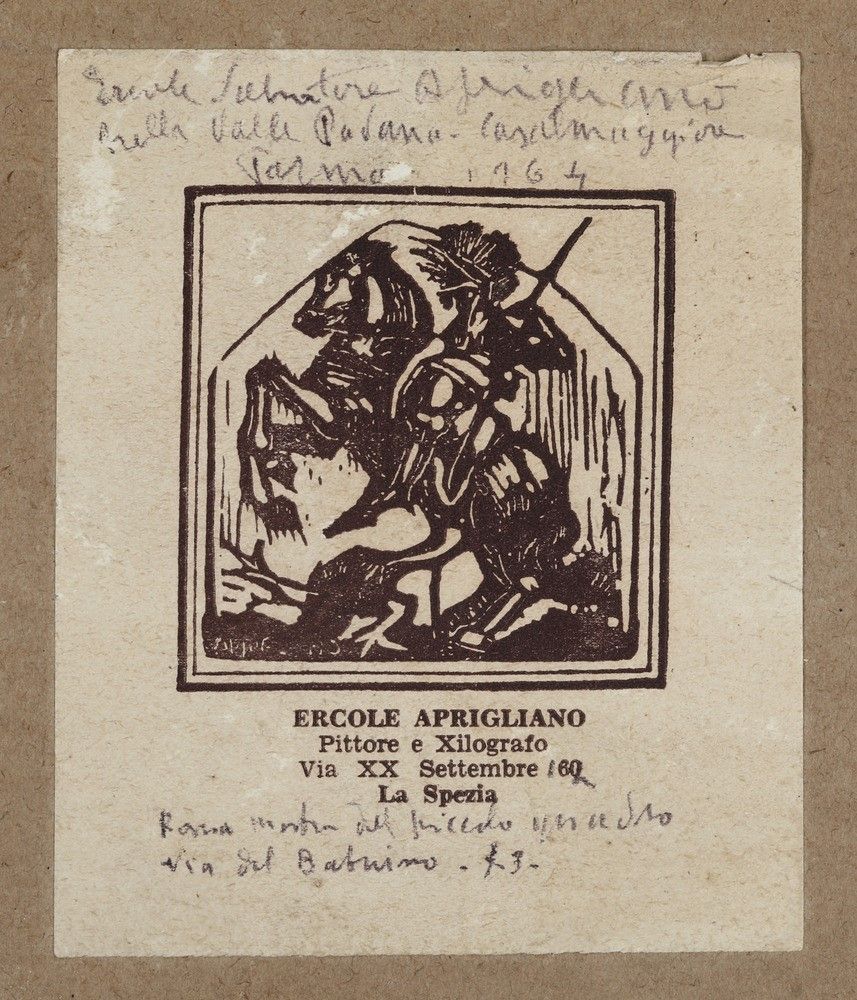 Ercole Salvatore Aprigliano
Bella Valle Padana - Casalmaggiore
Parma 1964
ERCOLE APRIGLIANO
Pittore e Xilografo
Via XX Settembre 160
La Spezia
Roma mostra del piccolo quadro
Via del Babuino - 13 -